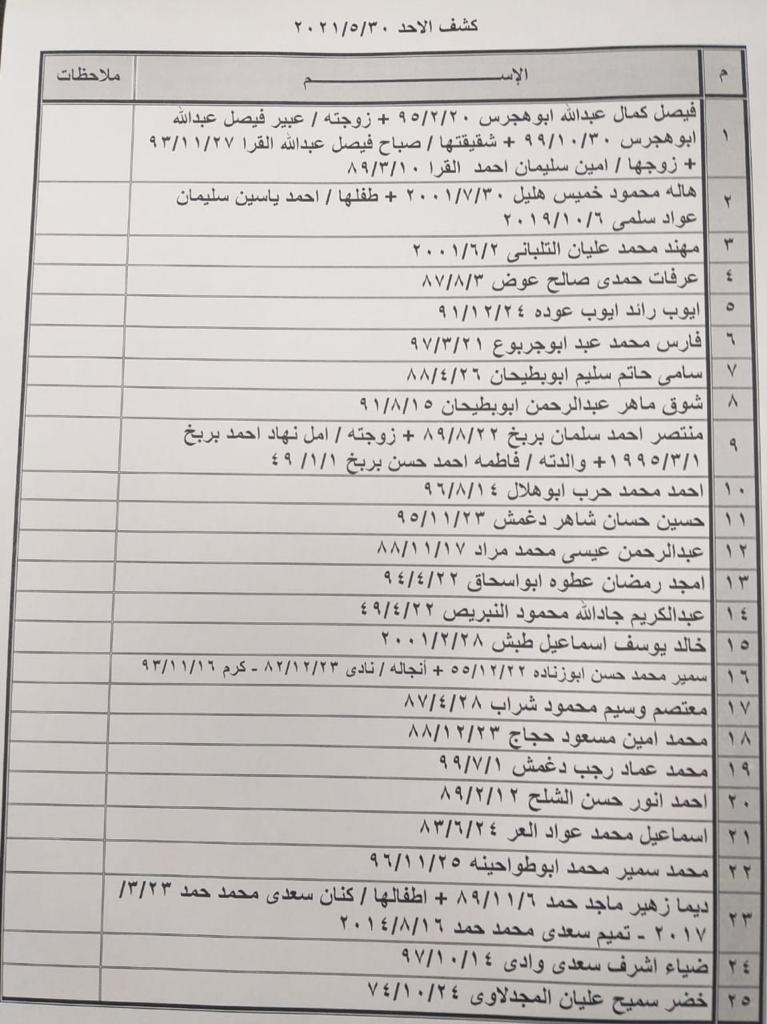 كشف الاحد ٢٠٢١/٥/٣٠
م الإســـــــــم ملاحظات
١ فيصل كمال عبدالله ابوهجرس ٩٥/٢/٢٠ + زوجته / عبير فيصل عبدالله
ابوهجرس ٩٩/١٠/٣٠ + شقيقتها / صباح فيصل عبدالله القرا ٩٣/١١/٢٧
+ زوجها / امين سليمان احمد القرا ٨٩/٣/١٠
٢ هاله محمود خميس هليل ٢٠٠١/٧/٣٠ + طفلها / احمد ياسين سليمان
عواد سلمى ٢٠١٩/١٠/٦
٣ مهند محمد عليان التلبانى ٢٠٠١/٦/٢
٤ عرفات حمدى صالح عوض ٨٧/٨/٣
٥ ايوب رائد ايوب عوده ٩١/١٢/٢٤
٦ فارس محمد عبد ابوجربوع ٩٧/٣/٢١
٧ سامى حاتم سليم ابوبطيحان ٨٨/٤/٢٦
٨ شوق ماهر عبدالرحمن ابوبطيحان ٩١/٨/١٥
٩ منتصر احمد سلمان بربخ ٨٩/٨/٢٢ + زوجته / امل نهاد احمد بربخ
١٩٩٥/٣/١+ والدته / فاطمه احمد حسن بربخ ٤٩/١/١
١٠ احمد محمد حرب ابوهلال ٩٦/٨/١٤
١١ حسين حسان شاهر دغمش ٩٥/١١/٢٣
١٢ عبدالرحمن عيسى محمد مراد ٨٨/١١/١٧
١٣ امجد رمضان عطوه ابواسحاق ٩٤/٤/٢٢
١٤ عبدالكريم جادالله محمود النبريص ٤٩/٤/٢٢
١٥ خالد يوسف اسماعيل طبش ٢٠٠١/٢/٢٨
١٦ سمير محمد حسن ابوزناده ٥٥/١٢/٢٢ + أنجاله / نادى ٨٢/١٢/٢٣ - كرم ٩٣/١١/١٦
١٧ معتصم وسيم محمود شراب ٨٧/٤/٢٨
١٨ محمد امين مسعود حجاج ٨٨/١٢/٢٣
١٩ محمد عماد رجب دغمش ٩٩/٧/١
٢٠ احمد انور حسن الشلح ٨٩/٢/١٢
٢١ اسماعيل محمد عواد العر ٨٣/٦/٢٤
٢٢ محمد سمير محمد ابوطواحينه ٩٦/١١/٢٥
٢٣ ديما زهير ماجد حمد ٨٩/١١/٦ + اطفالها / كنان سعدى محمد حمد ٣/٢٣/
٢٠١٧ - تميم سعدى محمد حمد ٢٠١٤/٨/١٦
٢٤ ضياء اشرف سعدى وادى ٩٧/١٠/١٤
٢٥ خضر سميح عليان المجدلاوى ٧٤/١٠/٢٤